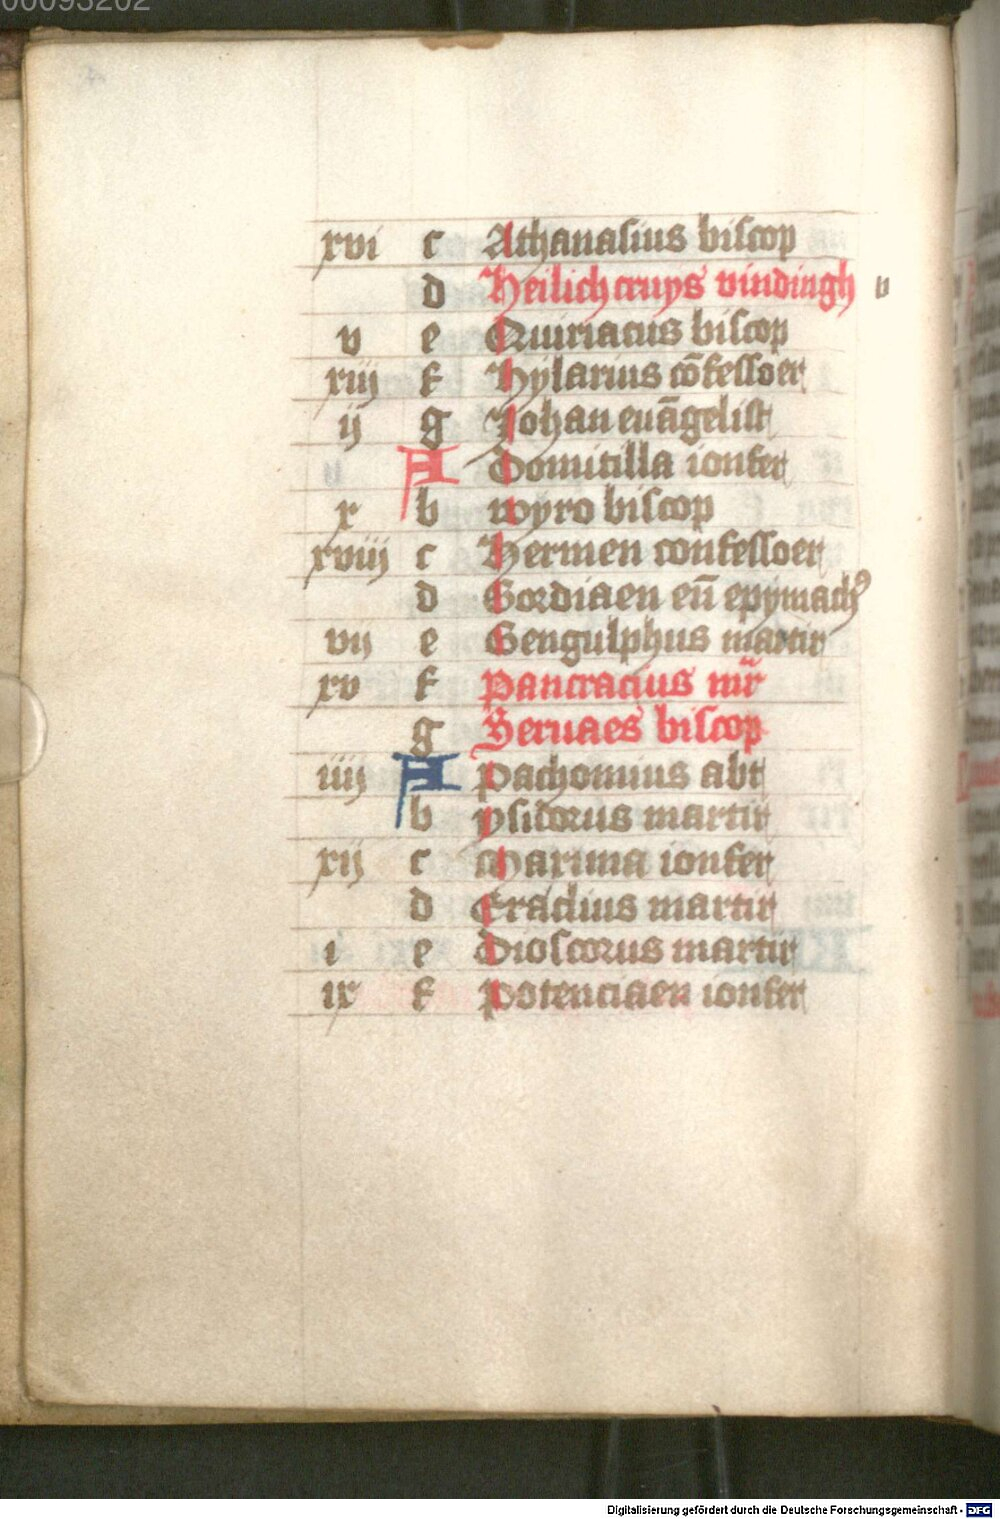 00093202
xvi c Athanasius biscop
d Heilich cruys vindingh
v e Quiriacus biscop
xiij f Hylarius cōfessoer
ij g Johan euāgelist
A Domitilla ionfer
x b Myro biscop
xviij c Hermen confessoer
d Gordiaen eñ epymachꝰ
vij e Gengulphus martir
xv f Pancracius mr̄
g Seruaes biscop
iiij A Pachomius abt
b ysidorus martir
xij c Maxima ionfer
d Eraclius martir
i e Dioscorus martir
ix f Potenciaen ionfer
Digitalisierung gefördert durch die Deutsche Forschungsgemeinschaft - DFG